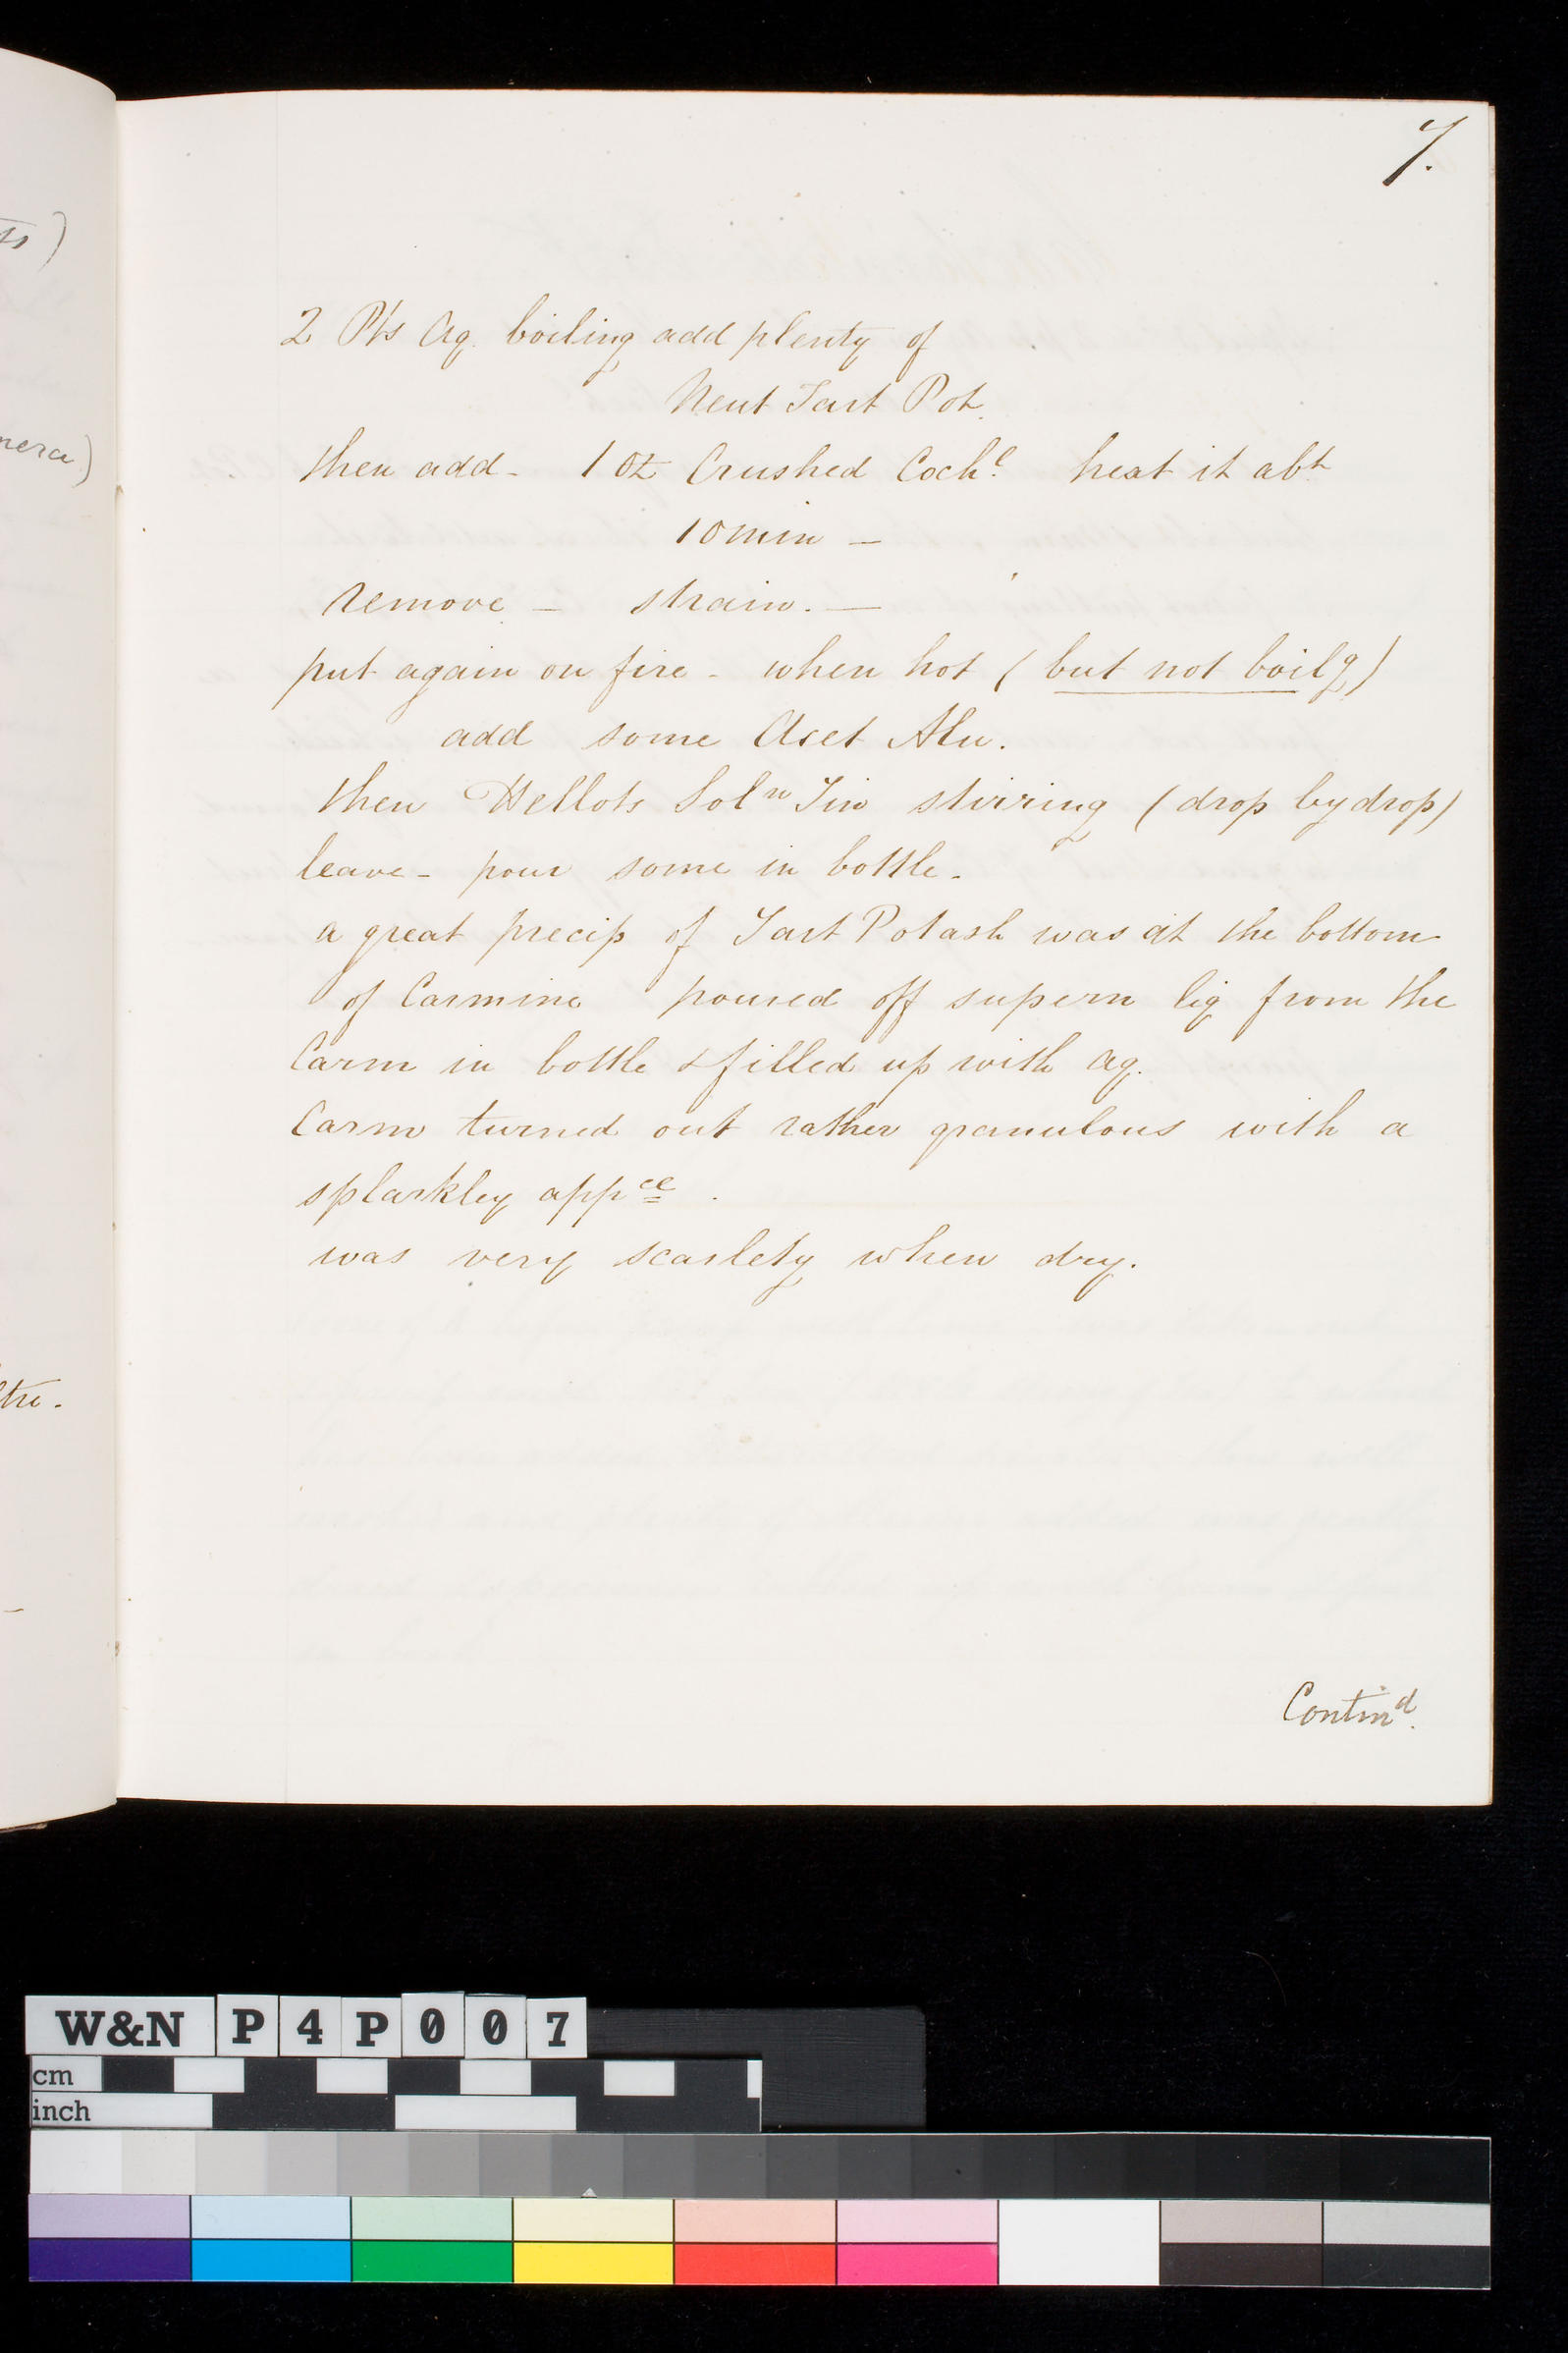 7.
2 Pts Aq. boiling add plenty of
Neut Tart Pot.
then add - 1 oz Crushed Cochl. heat it abt
10 min —
remove — strain. —
put again on fire - when hot (but not boilg)
add some Acet Alu.
then Hellots Soln Tin stirring (drop by drop)
leave - pour some in bottle -
a great precip of Tart Potash was at the bottom
of Carmine poured off supern liq from the
Carm in bottle & filled up with aq.
Carm turned out rather granulous with a
splarkley appce.
was very scarlety when dry.
Contind.
ts)
nera)
tre.
W&N P4P007
cm
inch